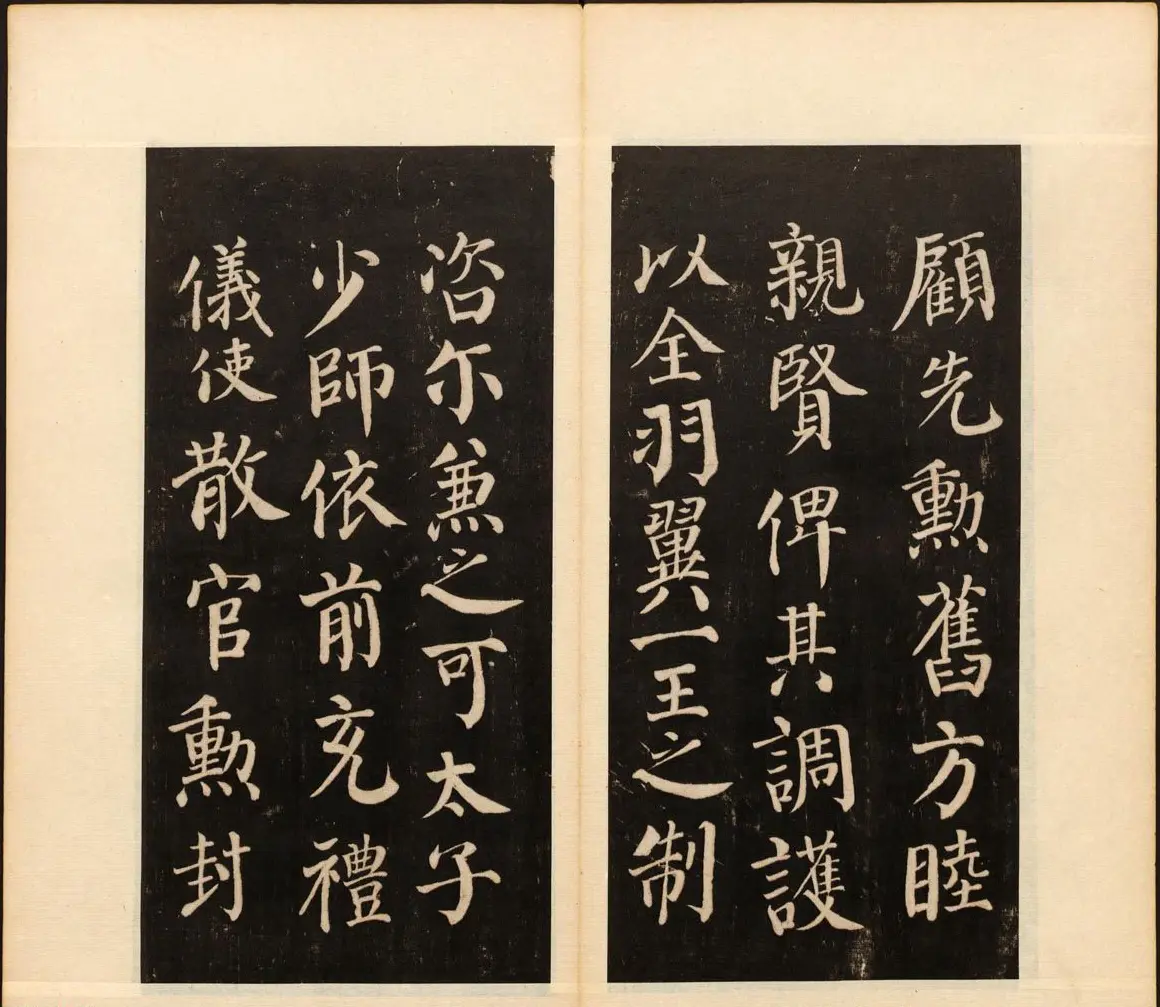 顧先勲舊方睦
親賢俾其調護
以全羽翼一王之制
咨尔兼之可太子
少師依前充禮
儀使散官勲封